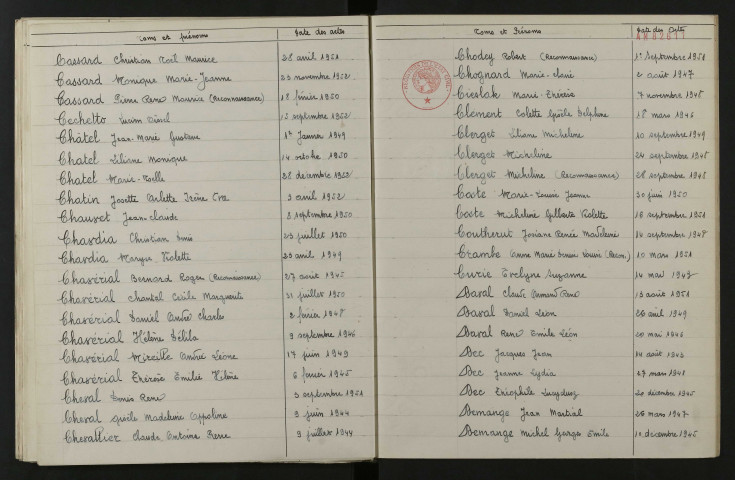 Noms et prénoms Date des actes
Cassard Christian Noël Maurice 28 avril 1951
Cassard Monique Marie-Jeanne 23 novembre 1952
Cassard Pierre René Maurice (Reconnaissance) 18 février 1950
Cechetto Lucien 15 septembre 1952
Châtel Jean-Marie Gustave 1er Janvier 1949
Chatel Liliane Monique 14 octobre 1950
Chatel Marie-Noëlle 28 décembre 1952
Chatin Josette Arlette Irène Eva 3 avril 1952
Chauvet Jean-Claude 8 septembre 1950
Chavdia Christian 23 juillet 1950
Chavdia Maryse Violette 23 avril 1949
Chavérial Bernard Roger (Reconnaissance) 27 août 1945
Chavérial Chantal Cécile Marguerite 31 juillet 1950
Chavérial Daniel André Charles 2 février 1948
Chavérial Hélène 9 septembre 1946
Chavérial Mireille Andrée Léone 17 juin 1949
Chavérial Thérèse Emilie Hélène 6 février 1945
Cheval Louis René 3 septembre 1951
Cheval Gisèle Madeleine Appoline 9 juin 1944
Chevallier Claude Antoine Pierre 9 juillet 1944
Noms et Prénoms Date des Actes
Chodey Robert (Reconnaissance) 1er Septembre 1951
Chognard Marie-Claire 2 août 1947
Cieslak Marie-Thérèse 7 novembre 1948
Clement Colette Gisèle Delphine 18 mars 1946
Clerget Liliane Micheline 10 septembre 1949
Clerget Micheline 24 septembre 1948
Clerget Micheline (Reconnaissance) 28 septembre 1948
Coste Marie-Louise Jeanne 30 juin 1950
Coste Micheline Gilberte Violette 16 septembre 1951
Coutherut Josiane Renée Madeleine 14 septembre 1948
Crambe Anne Marie Louise (Recon.) 10 mars 1951
Curie Evelyne Suzanne 14 mai 1943
Daval Claude René 13 août 1951
Daval Daniel Léon 26 avril 1949
Daval René Emile Léon 20 mai 1946
Dec Jacques Jean 14 août 1943
Dec Jeanne Lydia 27 mars 1948
Dec Théophile 20 décembre 1945
Demange Jean Martial 26 mars 1947
Demange Michel Georges Emile 10 décembre 1945